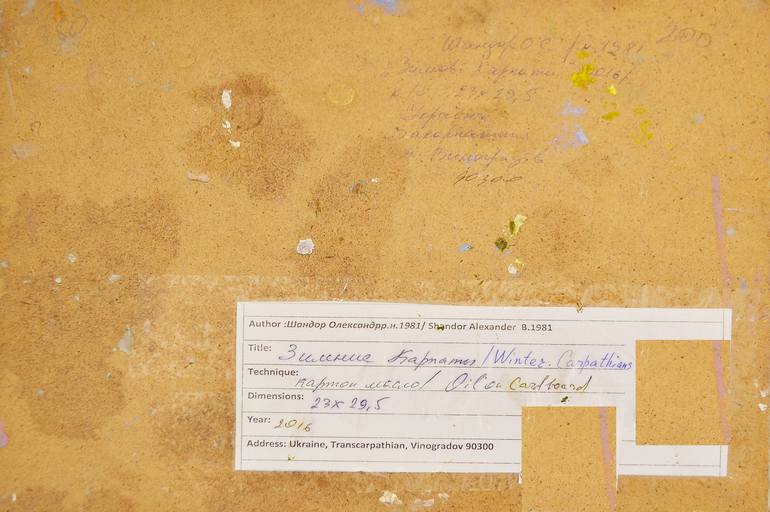 200
Шандор О.С. р.н. 1981
Зимові Карпати 2016
к/о 23x29,5
Україна
Закарпаття
м. Виноградів
90300
Author :Шандор Олександрр.н.1981/ Shandor Alexander B.1981
Title: Зимние Карпаты/Winter. Carpathians
Technique: картон масло/ Oil on Cardboard
Dimensions: 23x29,5
Year: 2016
Address: Ukraine, Transcarpathian, Vinogradov 90300